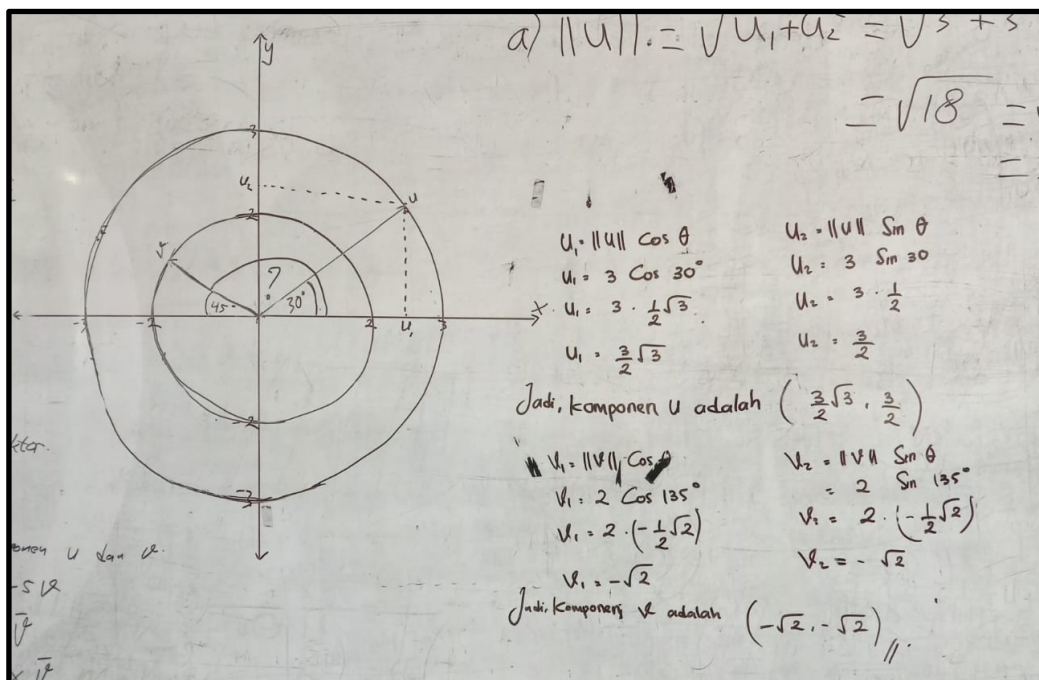 a) ||U|| = √U₁+U₂² = √3 + 3
= √18 =
=
y
3
U₂
u
2
v
?
45°
30°
-3
-2
U₁
2
3
x
2
-3
U₁ = ||U|| Cos θ
U₁ = 3 Cos 30°
U₁ = 3 · 1/2 √3
U₁ = 3/2 √3
U₂ = ||U|| Sin θ
U₂ = 3 Sin 30
U₂ = 3 · 1/2
U₂ = 3/2
Jadi, komponen U adalah (3/2 √3, 3/2)
V₁ = ||V|| Cos θ
V₁ = 2 Cos 135°
V₁ = 2 · (-1/2 √2)
V₁ = -√2
V₂ = ||V|| Sin θ
= 2 Sin 135°
V₂ = 2 · (-1/2 √2)
V₂ = - √2
Jadi, komponen V adalah (-√2, -√2) //
ktor.
onen U dan V.
-5V
V̄
x V̄